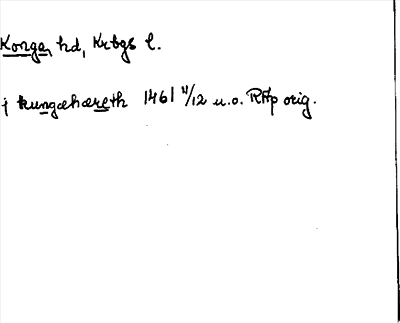 Konga, hd, Krbgs l.
j kungæhæreth 1461 4/12 u.o. RAp orig.